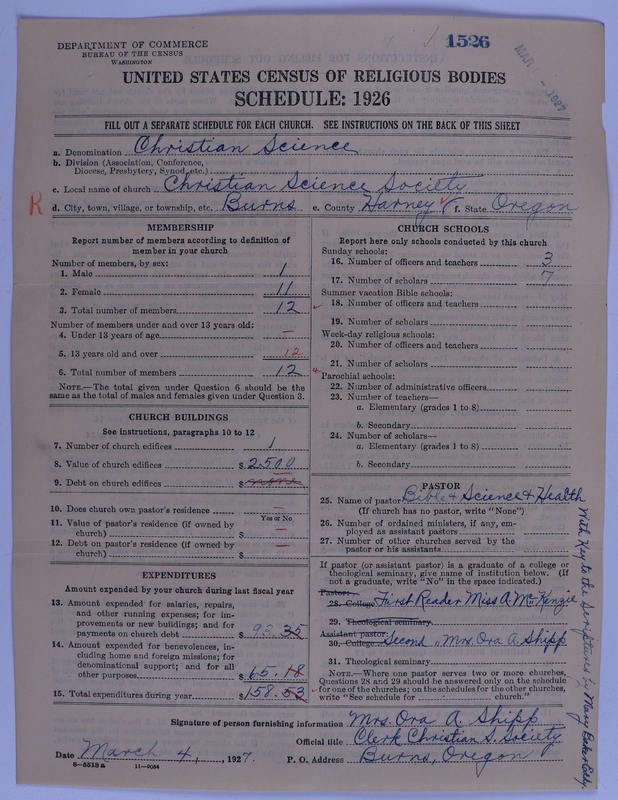 1526
MAR 1927
DEPARTMENT OF COMMERCE
BUREAU OF THE CENSUS
WASHINGTON
UNITED STATES CENSUS OF RELIGIOUS BODIES
SCHEDULE: 1926
FILL OUT A SEPARATE SCHEDULE FOR EACH CHURCH. SEE INSTRUCTIONS ON THE BACK OF THIS SHEET
a. Denomination Christian Science
b. Division (Association, Conference,
Diocese, Presbytery, Synod, etc.)
c. Local name of church Christian Science Society
R d. City, town, village, or township, etc. Burns e. County Harney f. State Oregon
MEMBERSHIP
Report number of members according to definition of
member in your church
Number of members, by sex:
1. Male 1
2. Female 11
3. Total number of members 12
Number of members under and over 13 years old:
4. Under 13 years of age —
5. 13 years old and over 12
6. Total number of members 12
NOTE.—The total given under Question 6 should be the
same as the total of males and females given under Question 3.
CHURCH BUILDINGS
See instructions, paragraphs 10 to 12
7. Number of church edifices 1
8. Value of church edifices $ 2500
9. Debt on church edifices $ none
10. Does church own pastor's residence —
Yes or No
11. Value of pastor's residence (if owned by
church) $ —
12. Debt on pastor's residence (if owned by
church) $ —
EXPENDITURES
Amount expended by your church during last fiscal year
13. Amount expended for salaries, repairs,
and other running expenses; for im-
provements or new buildings; and for
payments on church debt $ 93.35
14. Amount expended for benevolences, in-
cluding home and foreign missions; for
denominational support; and for all
other purposes $ 65.18
15. Total expenditures during year $ 158.53
CHURCH SCHOOLS
Report here only schools conducted by this church
Sunday schools:
16. Number of officers and teachers 3
17. Number of scholars 7
Summer vacation Bible schools:
18. Number of officers and teachers
19. Number of scholars
Week-day religious schools:
20. Number of officers and teachers
21. Number of scholars
Parochial schools:
22. Number of administrative officers
23. Number of teachers—
a. Elementary (grades 1 to 8)
b. Secondary
24. Number of scholars—
a. Elementary (grades 1 to 8)
b. Secondary
PASTOR
25. Name of pastor Bible & Science & Health
With Key to the Scriptures by Mary Baker Eddy.
(If church has no pastor, write "None")
26. Number of ordained ministers, if any, em-
ployed as assistant pastors
27. Number of other churches served by the
pastor or his assistants
If pastor (or assistant pastor) is a graduate of a college or
theological seminary, give name of institution below. (If
not a graduate, write "No" in the space indicated.)
Pastor:
28. College First Reader Miss A McKenzie
29. Theological seminary
Assistant pastor:
30. College Second " Mrs. Ora A Shipp
31. Theological seminary
NOTE.—Where one pastor serves two or more churches,
Questions 28 and 29 should be answered only on the schedule
for one of the churches; on the schedules for the other churches,
write "See schedule for church."
Signature of person furnishing information Mrs. Ora A Shipp
Official title Clerk Christian S. Society
Date March 4, 1927. P. O. Address Burns, Oregon
8—5518 a 11—9054